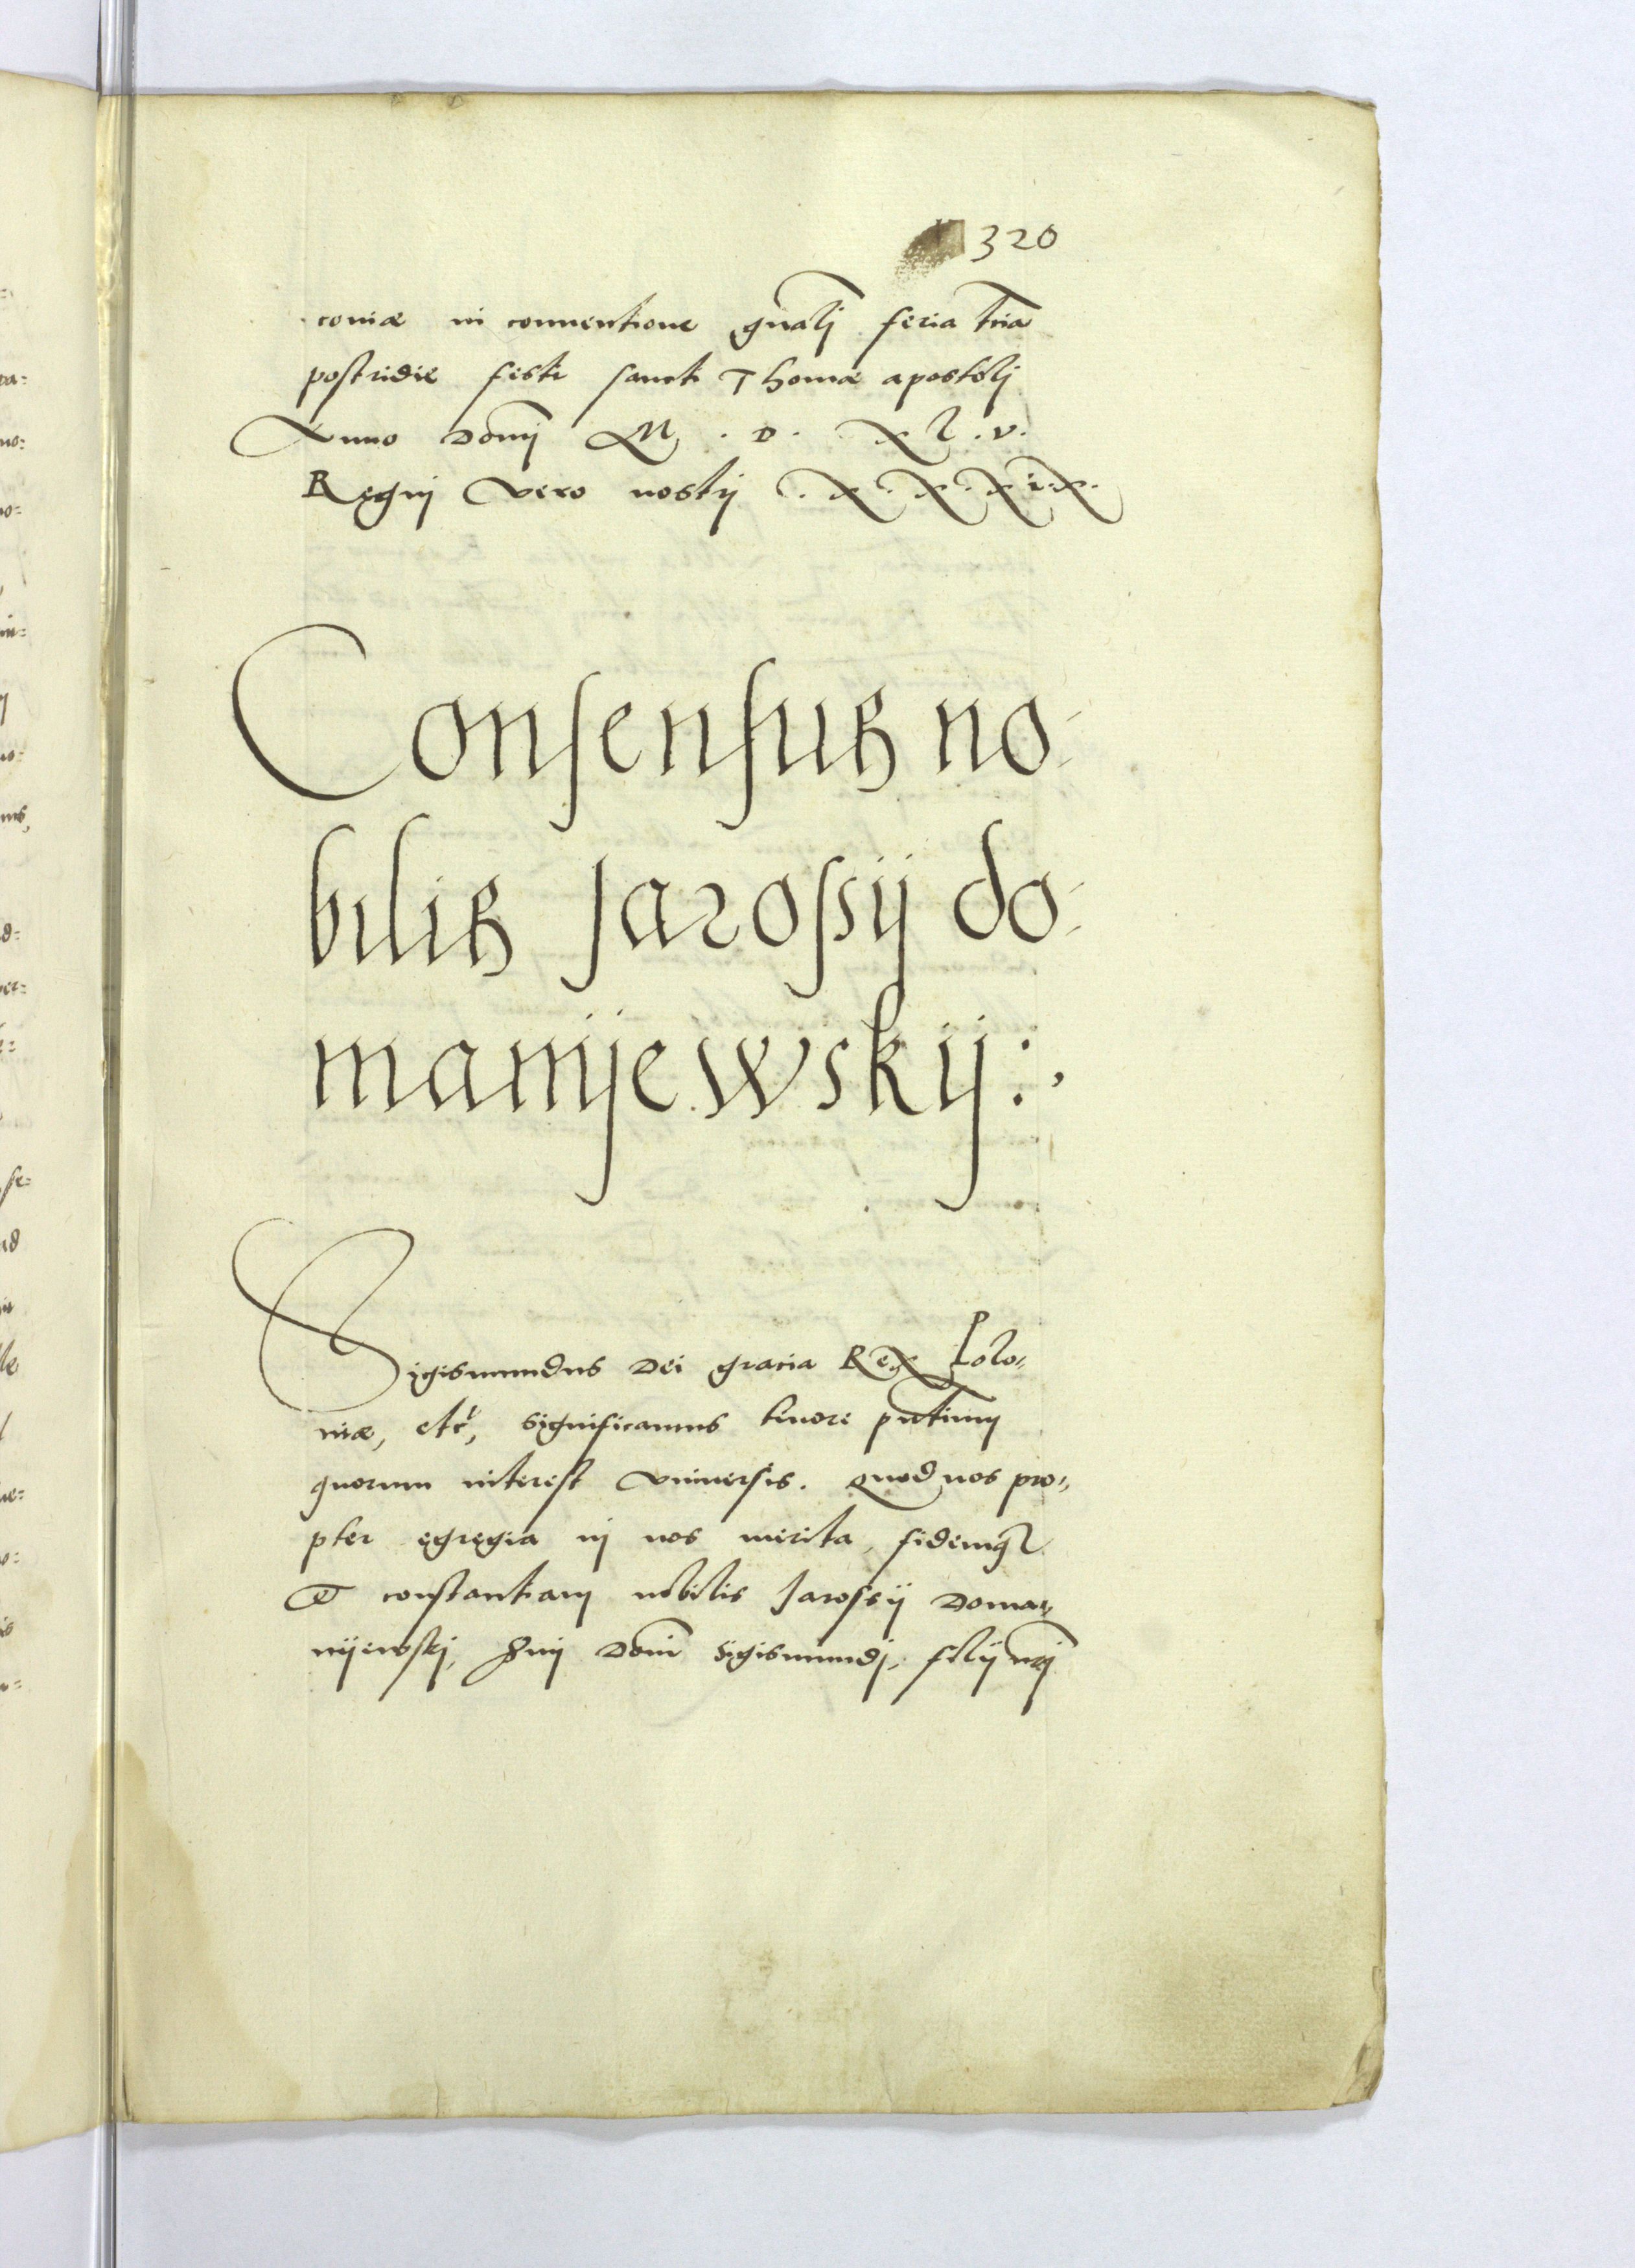 320
coniæ in conventione gnalj feria tria
postridie festi sancti Thomæ apostolj
Anno Domj M . D . X L . V .
Regnj vero nostrj . X . X . X i . X .
Consensus no-
bilis Jarossij do-
manijewskij :,
Sigismundus Dei gracia Rex Polo-
niæ, etc, significamus tenore pntium
quorum interest vniversis. Quod nos pro-
pter egregia in nos merita, fidemq
Et constantiam nobilis Jarossij Doma-
nijewskj, Domi Sigismundj, filij nrj